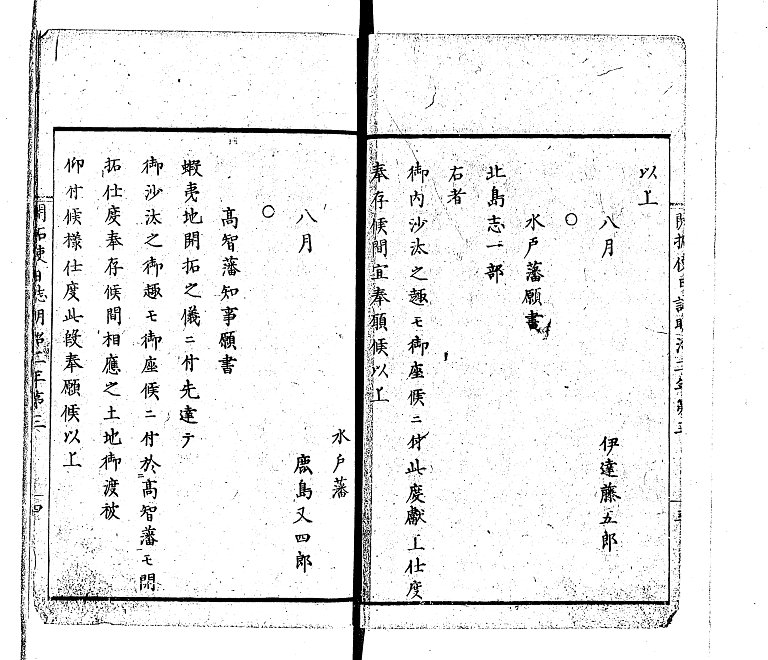 以上
八月
伊達藤五郎
○
水戸藩願書
北島志一部
右者
御内沙汰之趣モ御座候ニ付此度獻上仕度
奉存候間宜奉願候以上
水戸藩
八月
鹿島又四郎
○
高智藩知事願書
蝦夷地開拓之儀ニ付先達テ
御沙汰之御趣モ御座候ニ付於高智藩モ開
拓仕度奉存候間相應之土地御渡被
仰付候様仕度此段奉願候以上
開拓使日誌明治二年第三
四